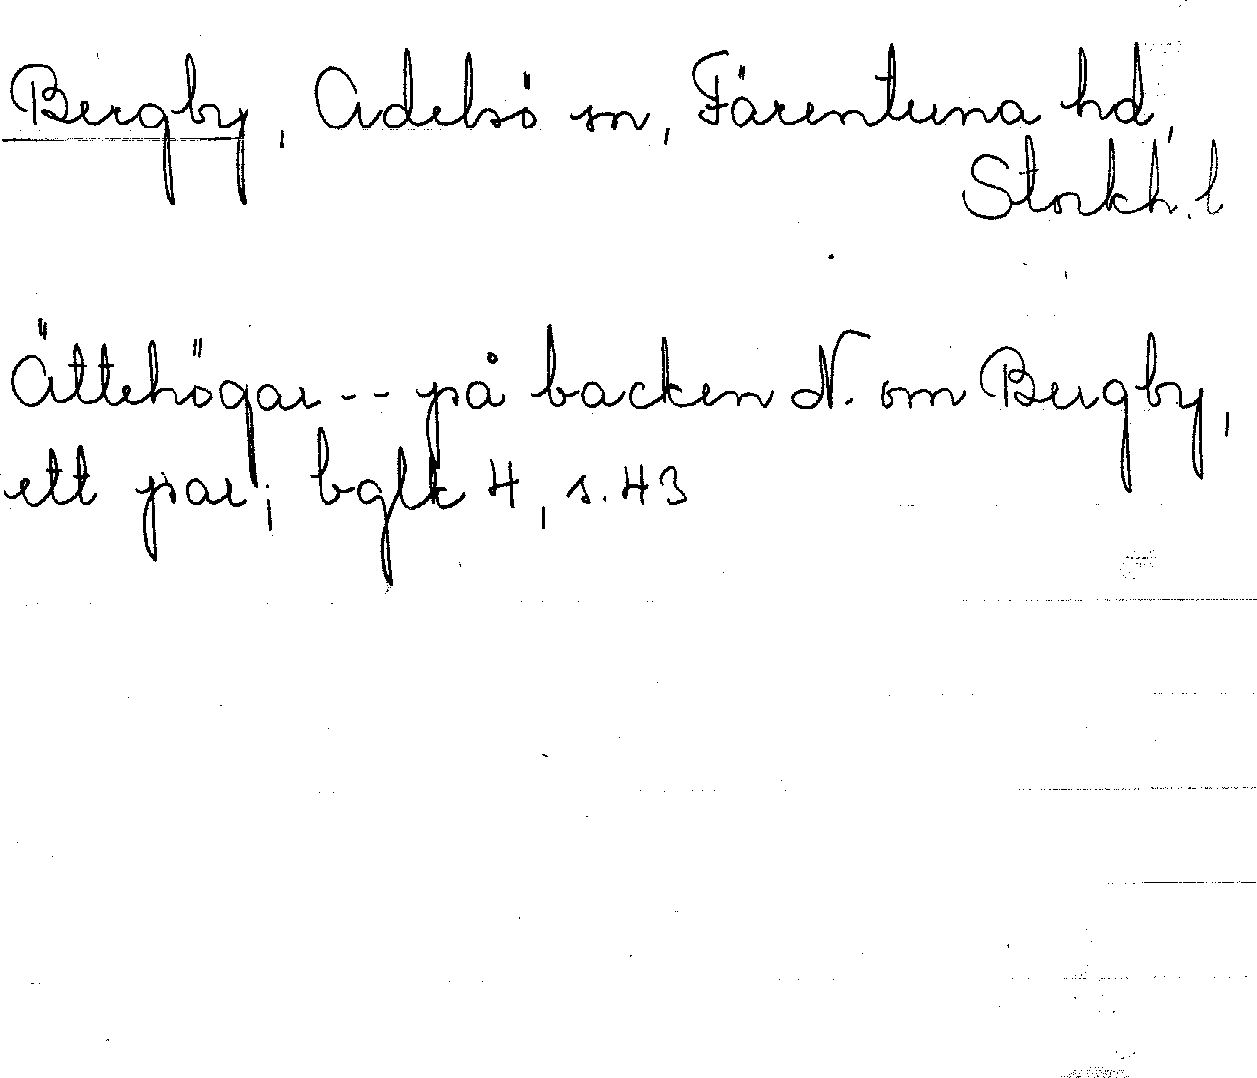 Bergby, Adelsö sn, Färentuna hd,
Stockh. l
Ättehögar -- på backen N. om Bergby,
ett par; bglk 4, s. 43